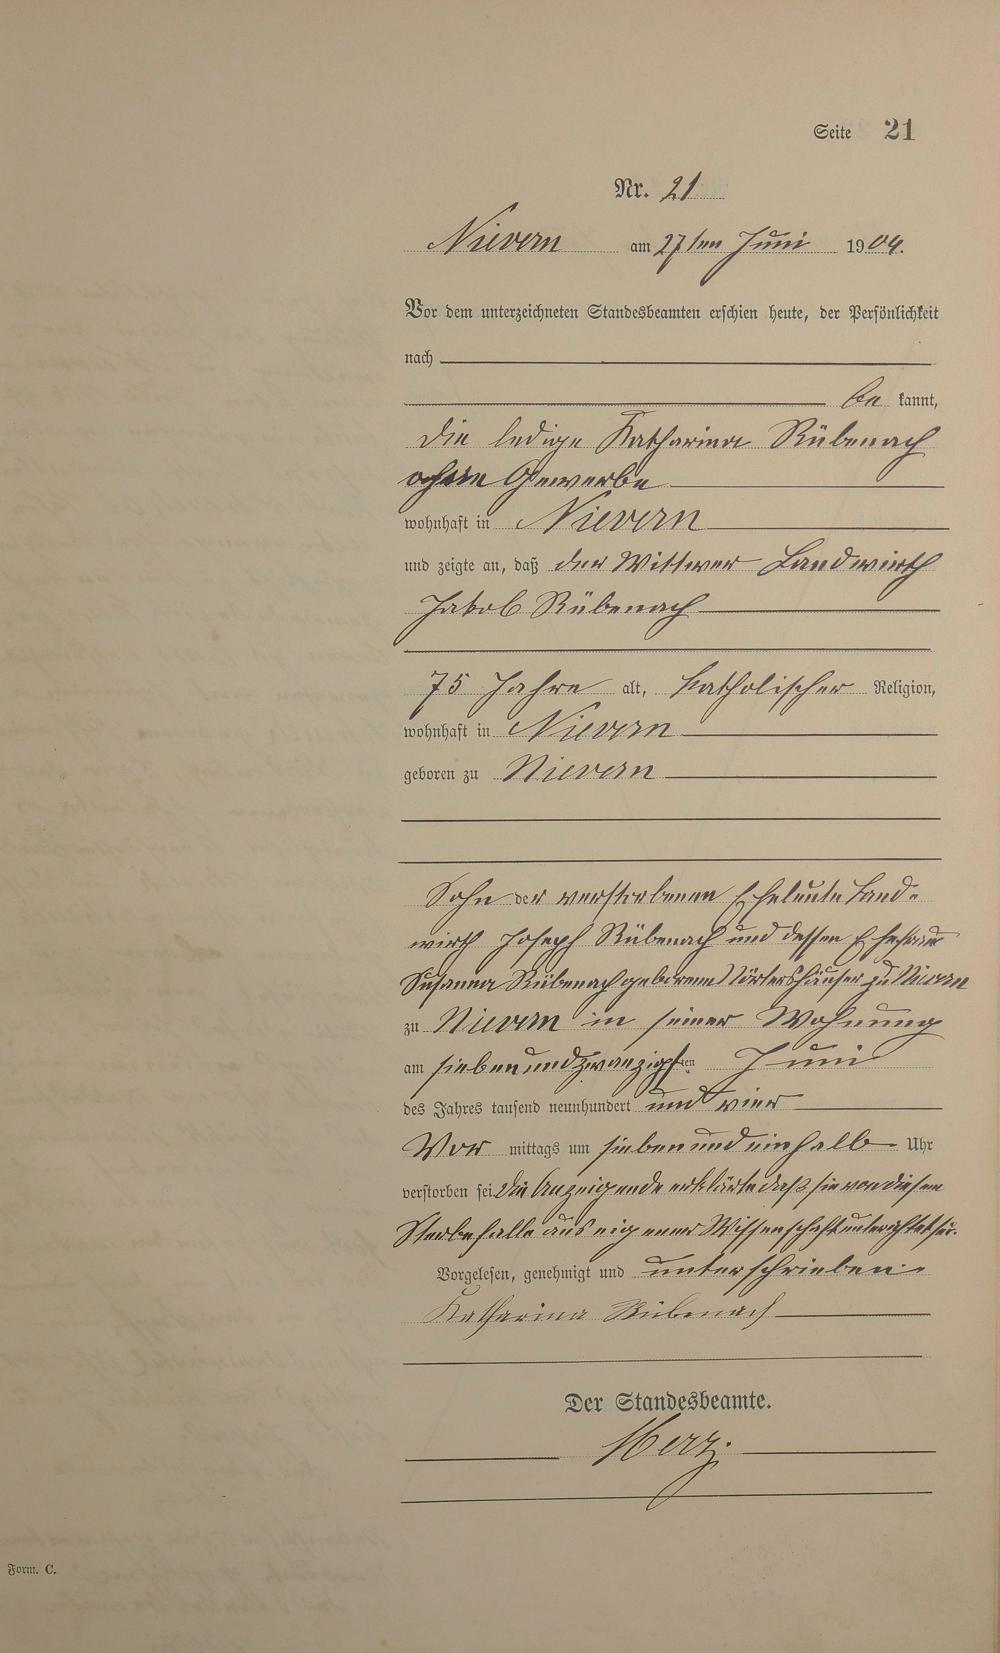 Seite 21
Nr. 21
Nievern am 27ten Juni 1904.
Vor dem unterzeichneten Standesbeamten erschien heute, der Persönlichkeit
nach
be kannt,
die ledige Katharina Rübenach
ohne Gewerbe
wohnhaft in Nievern
und zeigte an, daß der Wittwer Landwirth
Jakob Rübenach
75 Jahre alt, katholischer Religion,
wohnhaft in Nievern
geboren zu Nievern
Sohn der verstorbenen Eheleute Land-
wirth Joseph Rübenach und dessen Ehefrau
Susanna Rübenach geborene Nörtershäuser zu Nievern
zu Nievern in seiner Wohnung
am siebenundzwanzigsten Juni
des Jahres tausend neunhundert und vier
Vor mittags um siebenundeinhalb Uhr
verstorben sei. Die Anzeigende erklärte daß sie von diesem
Sterbefalle aus eigener Wissenschaft unterrichtet sei.
Vorgelesen, genehmigt und unterschrieben.
Katharina Rübenach
Der Standesbeamte.
Herz.
Form. C.